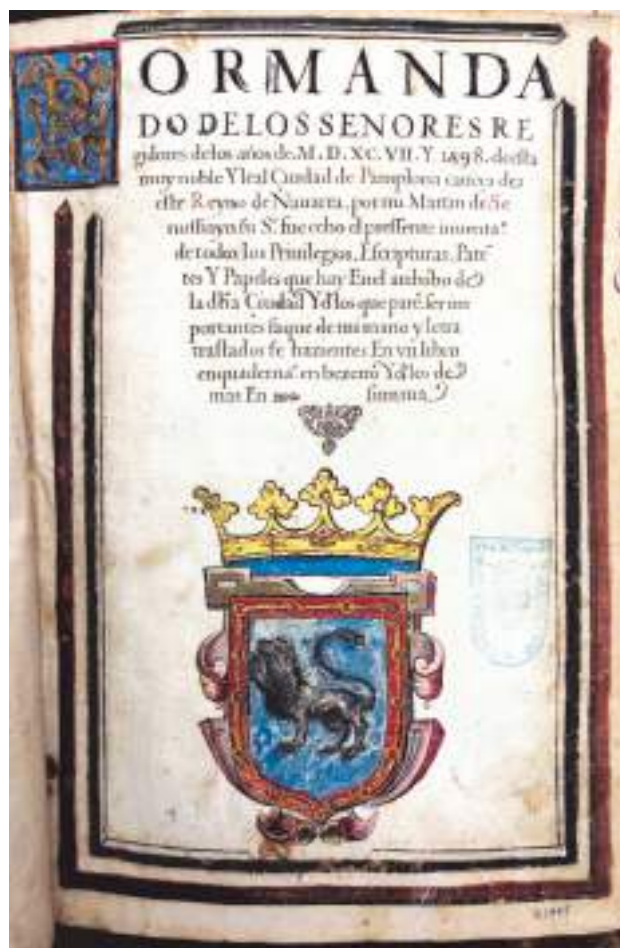 POR MANDA
DO DE LOS SENORES RE
gidores de los años de. M. D. XC. VII. Y 1598. desta
muy noble Y leal Ciudad de Pamplona caueca de
este Reyno de Nauarra, por mi Martin de Se
su Sº. fue echo el pressente inuentº
de todos los Priuilegios, Escripturas, Paten
tes Y Papeles que hay En el archibo de
la dha Ciudad Y dlos que pare. ser im
portantes saque de mi mano y letra
traslados fe hazientes En vn libro
enquadernaº en bezerro Y dlos de
mas En summa,